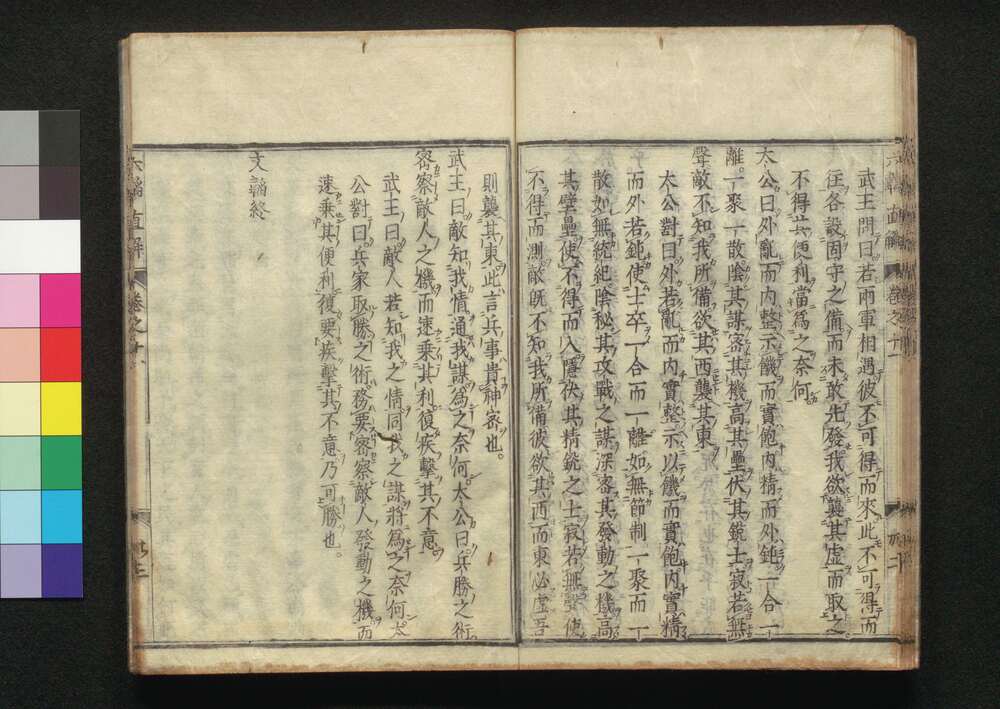 武王問曰若兩軍相遇彼不可得而來此不可得而
徃各設固守之備而未敢先發我欲襲其虛而取之
不得其便利當爲之奈何
太公曰外亂而内整示饑而實飽内精而外鈍一合一
離一聚一散陰其謀密其機高其壘伏其銳士寂若無
聲敵不知我所備欲其西襲其東
太公對曰外若亂而内實整示以饑而實飽内實精
而外若鈍使士卒一合而一離如無節制一聚而一
散如無統紀陰秘其攻戰之謀深密其發動之機高
其壁壘使不得而入隱伏其精銳之士寂若無聲使
不得而測敵既不知我所備彼欲其西而東必虛吾
則襲其東此言兵事貴神密也。
武王曰。敵知我情通我謀爲之奈何。太公曰。兵勝之術。
密察敵人之機而速乗其利。復疾擊其不意。
武王曰敵人若知我之情同我之謀將爲之奈何太
公對曰。兵家取勝之術務要密察敵人發動之機而
速乗其便利復要疾擊其不意乃可勝也。
文韜終
六韜直解
卷之十一